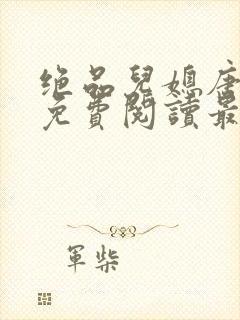 绝品兒媳唐
免費閱讀最
軍柴